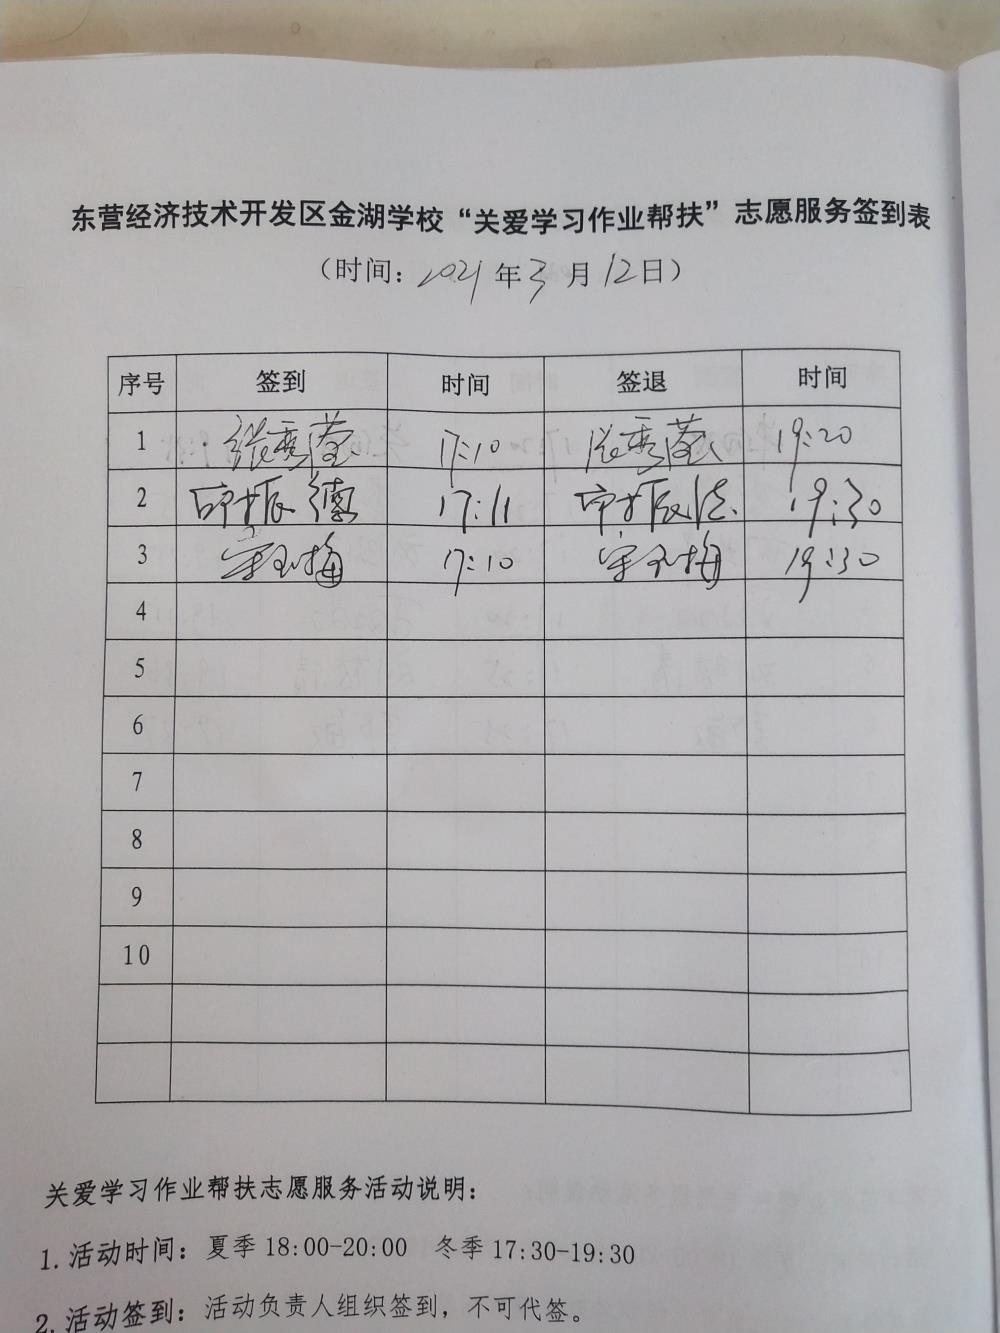 东营经济技术开发区金湖学校“关爱学习作业帮扶”志愿服务签到表
（时间：2021年3月12日）
序号 签到 时间 签退 时间
1 张秀莹 17:10 张秀莹 19:20
2 印振德 17:11 印振德 19:30
3 宋玉梅 17:10 宋玉梅 19:30
4
5
6
7
8
9
10
关爱学习作业帮扶志愿服务活动说明：
1.活动时间：夏季18:00-20:00 冬季17:30-19:30
2.活动签到：活动负责人组织签到，不可代签。